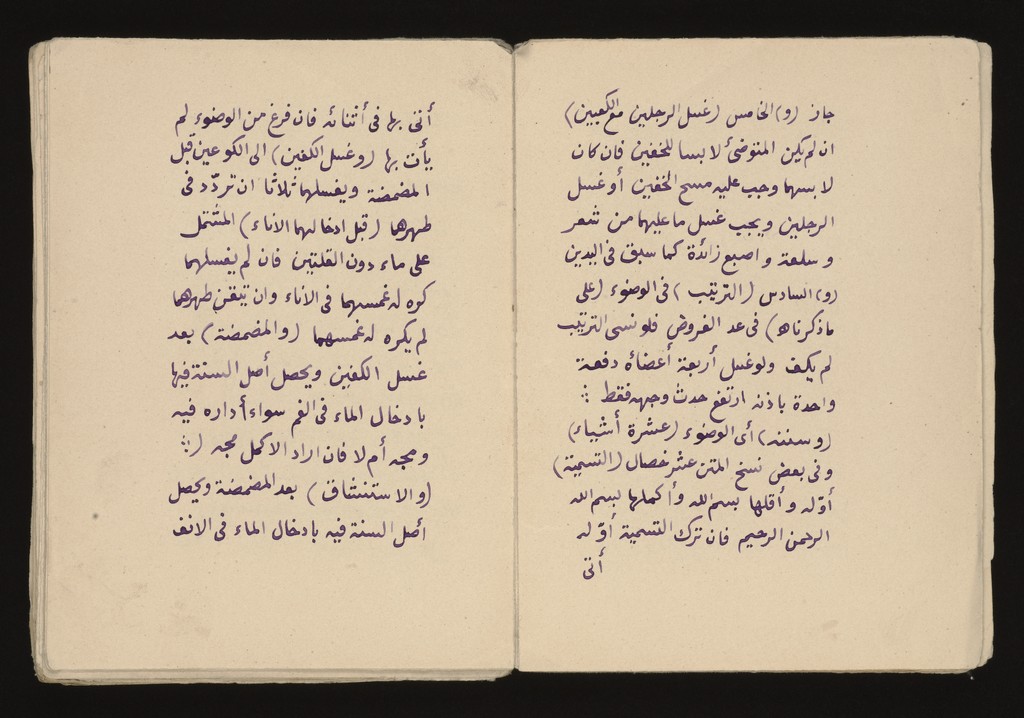 جاز (و) الخامس (غسل الرجلين مع الكعبين)
ان لم يكن المتوضئ لابسا للخفين فان كان
لابسهما وجب عليه مسح الخفين أو غسل
الرجلين ويجب غسل ما عليهما من شعر
وسلعة واصبع زائدة كما سبق فى اليدين
(و) السادس (الترتيب) فى الوضوء (على
ما ذكرناه) فى عد الفروض فلو نسى الترتيب
لم يكف ولو غسل أربعة أعضاه دفعة
واحدة باذنه ارتفع حدث وجهه فقط
(وسننه) أى الوضوء (عشرة أشياء)
وفى بعض نسخ المتن عشر خصال (التسمية)
أوّله وأقلها بسم الله وأكملها بسم الله
الرحمن الرحيم فان ترك التسمية أوّله
أتى
أتى بها فى أثنائه فان فرغ من الوضوء لم
يأت بها (وغسل الكفين) الى الكوعين قبل
المضمضة ويغسلهما ثلاثا ان تردّد فى
طهرهما (قبل ادخالهما الاناء) المشتمل
على ماء دون القلتين فان لم يغسلهما
كره له غمسهما فى الاناء وان تيقن طهرهما
لم يكره له غمسهما (والمضمضة) بعد
غسل الكفين ويحصل أصل السنة فيها
بادخال الماء فى الفم سواء أداره فيه
ومجه أم لا فان اراد الاكمل مجه (
(والاستنشاق) بعد المضمضة ويحصل
أصل السنة فيه بادخال الماء فى الانف